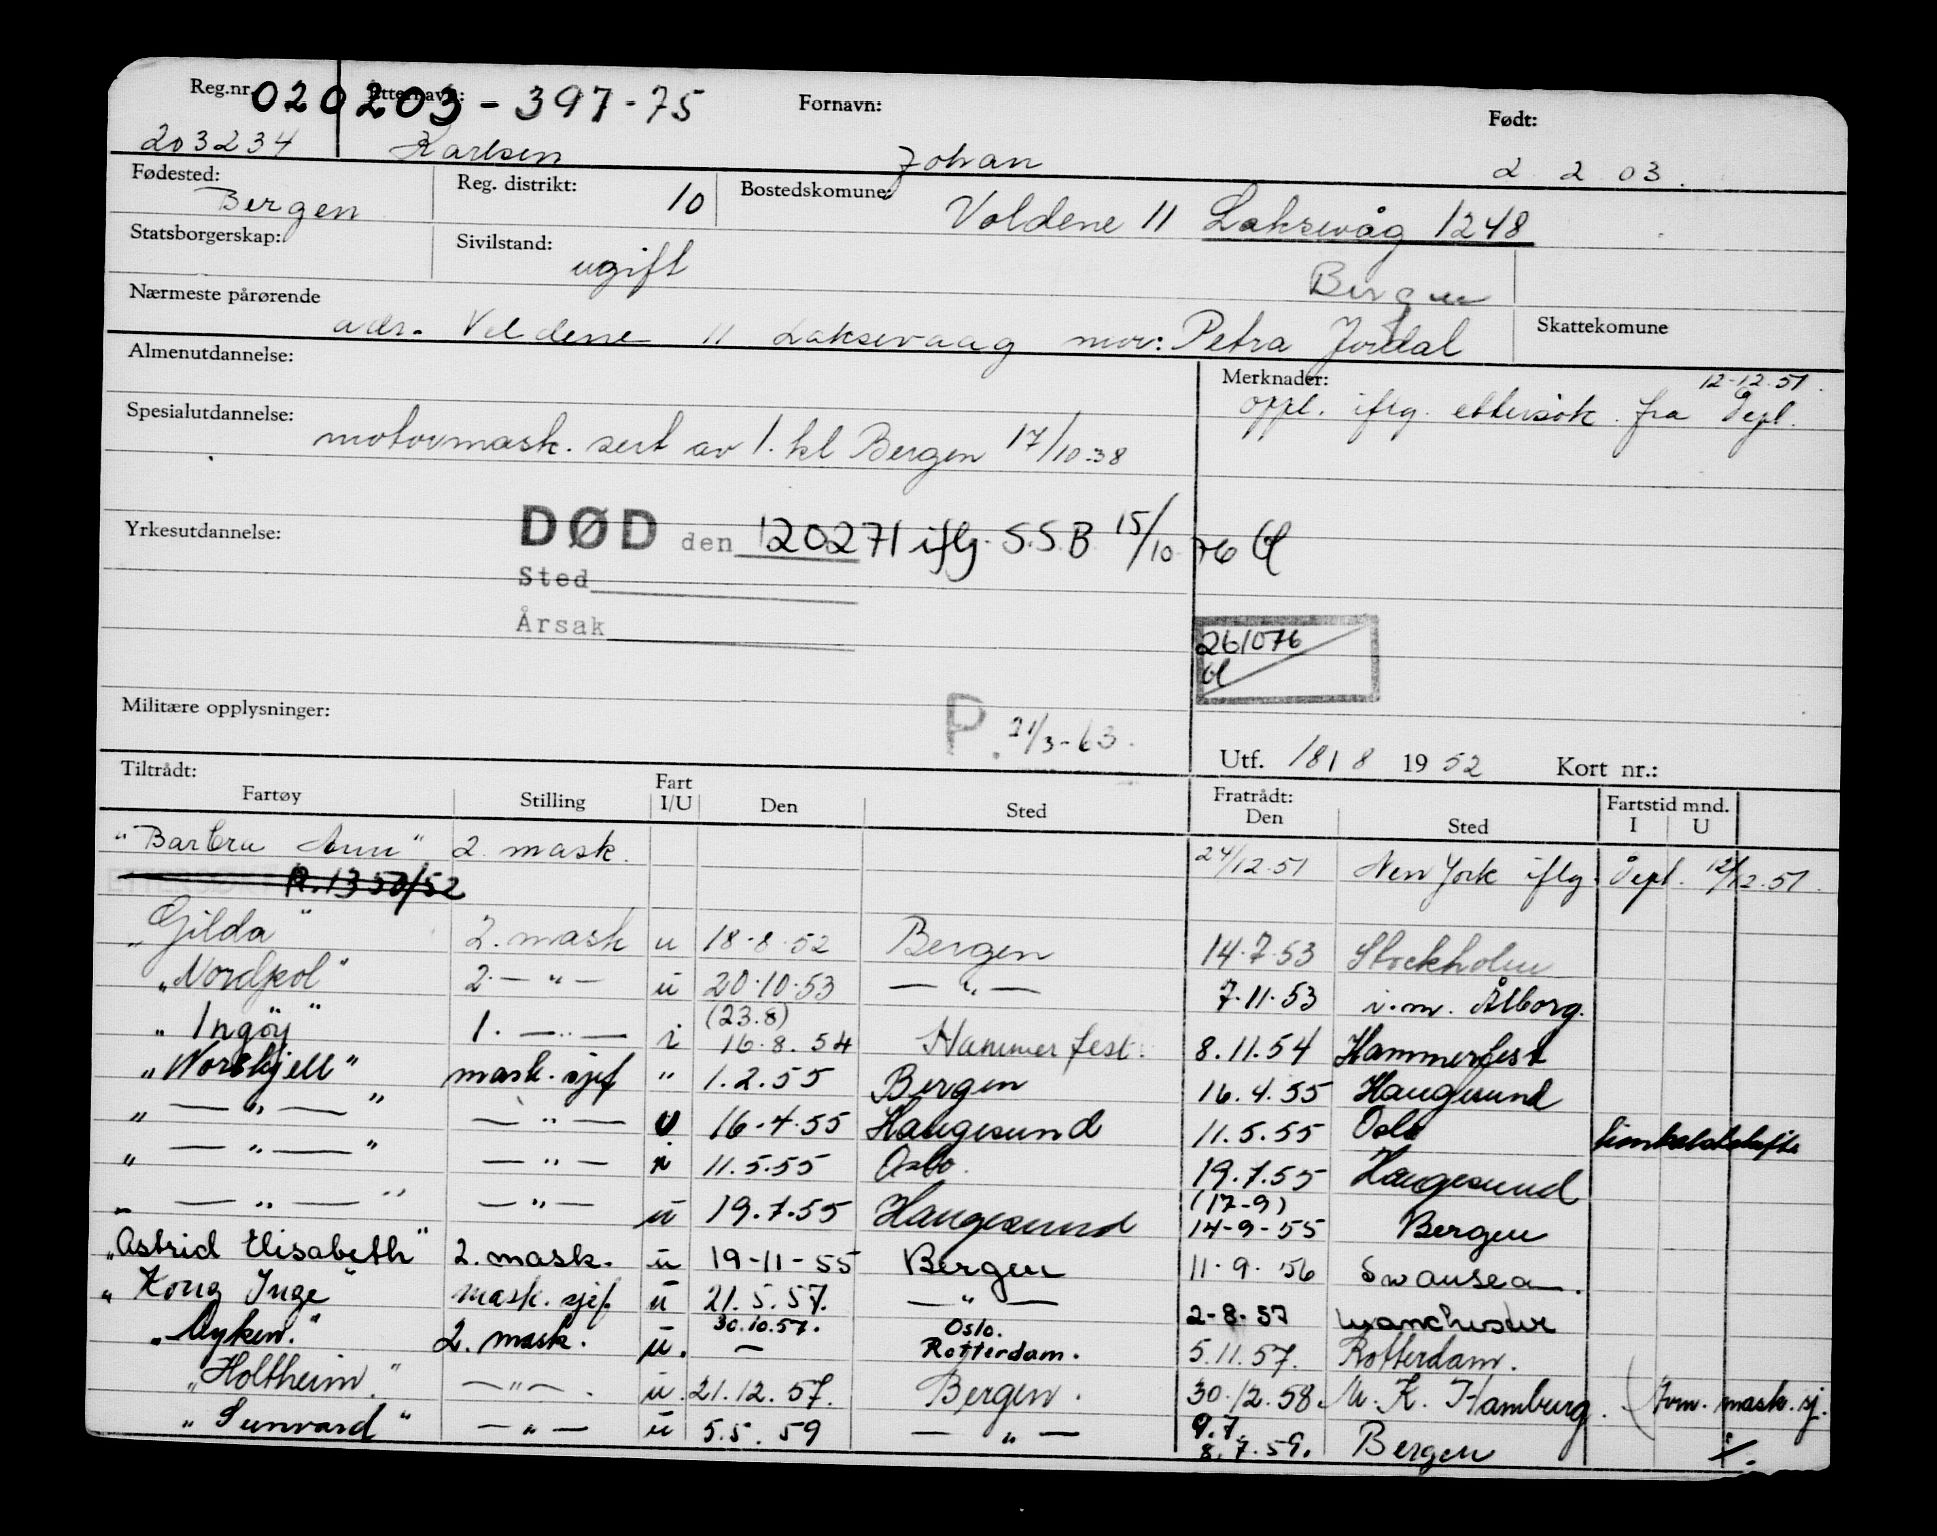 Reg.nr. 020203-397-75 Etternavn: Fornavn: Født:
203234 Karlsen Johan 2 2 03.
Fødested: Bergen Reg. distrikt: 10 Bostedskomune: Voldene 11 Laksevåg 1248
Statsborgerskap: Sivilstand: ugift Bergen
Nærmeste pårørende adr. Voldene 11 Laksevaag mor: Petra Jordal Skattekomune
Almenutdannelse: Merknader: 12-12.51.
oppl. iflg. ettersøk. fra
Spesialutdannelse: motormask. sert av 1. kl Bergen 17/10.38
Yrkesutdannelse: DØD den 120271 iflg. S.S.B 15/10 76
Sted
Årsak
261076
Militære opplysninger: P. 21/3-63.
Utf. 18/8 1952 Kort nr.:
Tiltrådt: Fratrådt: Fartstid mnd.
Fartøy Stilling Fart I/U Den Sted Den Sted I U
"Barbru Ann" 2. mask. 24/12.51 New York iflg. 12/12.51.
R.1350/52
"Gilda" 2. mask u 18.8.52 Bergen 14.7.53 Stockholm
"Nordpol" 2. — " — u 20.10.53 — " — 7.11.53 i.m. Ålborg.
"Ingöy" 1. — " — i (23.8) 16.8.54 Hammerfest. 8.11.54 Hammerfest
"Norskjell" mask. sjef " 1.2.55 Bergen 16.4.55 Haugesund
" — " — " — " — u 16-4-55 Haugesund 11.5.55 Oslo
" — " — " — " — i 11.5.55 Oslo. 19.7.55 Haugesund
" — " — " — " — u 19.7.55 Haugesund (17-9) 14-9-55 Bergen
"Astrid Elisabeth" 2. mask. u 19-11-55 Bergen 11.9.56 Swansea.
"Kong Inge" mask. sjef. u 21.5.57. — " — 2-8-57 Manchester
2. mask. u. 30.10.57. — Oslo. Rotterdam. 5.11.57. Rotterdam.
"Holtheim." — " — . u. 21.12.57. Bergen. 30.12.58. M. K. Hamburg. mask. sj.
"Sunvard" — " — u 5.5.59 — " — 9.7. 8.7.59. Bergen